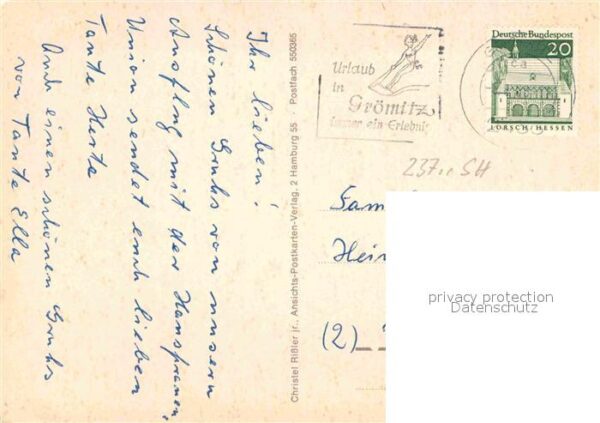 Ihr lieben!
Schönen Gruhs von unserm
Ausflug mit der Hausfrauen,
Union sendet euch lieben
Tante Herta
Auch einen schönen Gruhs
von Tante Ella
Christel Rißler jr., Ansichts-Postkarten-Verlag, 2 Hamburg 55 Postfach 550365
Urlaub
in
Grömitz
immer ein Erlebnis
Deutsche Bundespost
20
LORSCH/HESSEN
237.. SH
Fam
Hein
(2)
privacy protection
Datenschutz